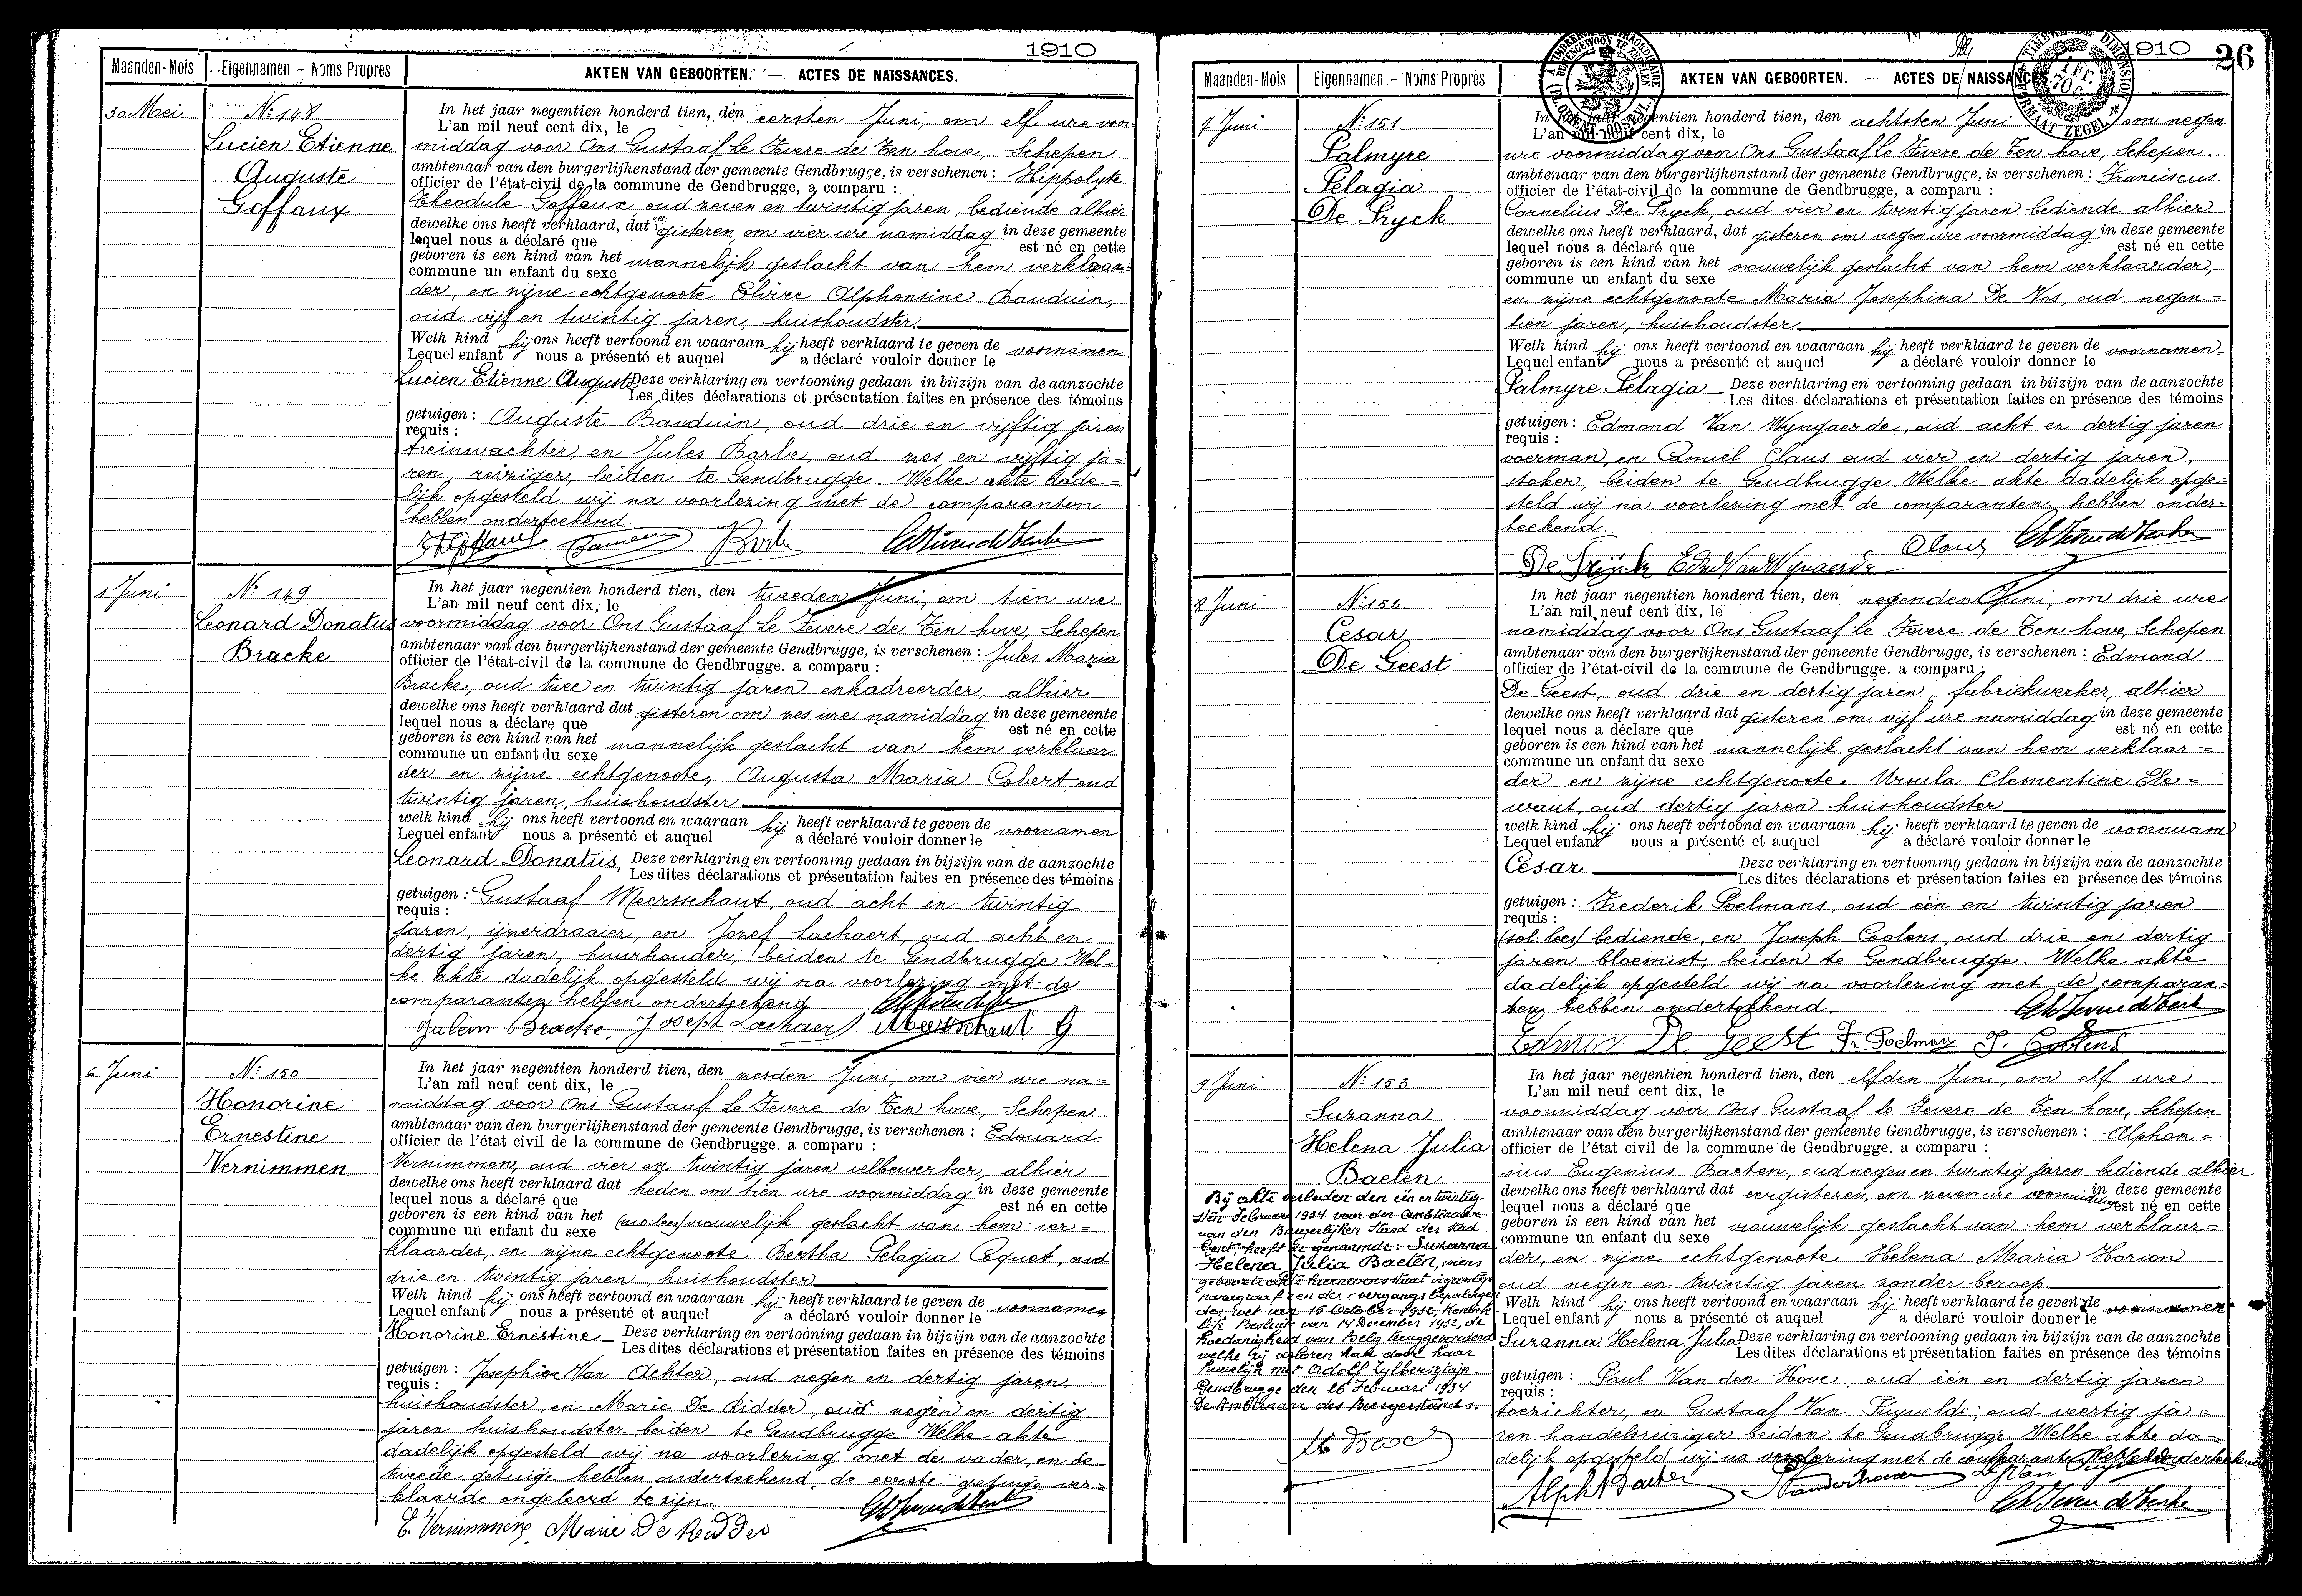 1910
Maanden-Mois Eigennamen - Noms Propres AKTEN VAN GEBOORTEN. — ACTES DE NAISSANCES.
30 Mei
No 148
Lucien Etienne
Auguste
Goffaux
In het jaar negentien honderd tien, den eersten Juni, om elf ure voor-
L'an mil neuf cent dix, le
middag voor Ons Gustaaf Le Fevere de Ten hove, Schepen
ambtenaar van den burgerlijkenstand der gemeente Gendbrugge, is verschenen : Hippolyte
officier de l'état-civil de la commune de Gendbrugge, a comparu :
Theodule Goffaux oud zeven en twintig jaren, bediende alhier
dewelke ons heeft verklaard, dat eergisteren, om vier ure namiddag in deze gemeente
lequel nous a déclaré que est né en cette
geboren is een kind van het mannelijk geslacht van hem verklaar-
commune un enfant du sexe
der, en zijne echtgenoote Elvire Alphonsine Bauduin,
oud vijf en twintig jaren, huishoudster.
Welk kind hij ons heeft vertoond en waaraan hij heeft verklaard te geven de voornamen
Lequel enfant nous a présenté et auquel a déclaré vouloir donner le
Lucien Etienne Auguste Deze verklaring en vertooning gedaan in bijzijn van de aanzochte
Les dites déclarations et présentation faites en présence des témoins
getuigen : Auguste Bauduin, oud drie en vijftig jaren
requis :
treinwachter, en Jules Barbe, oud zes en vijftig ja-
ren, reiziger, beiden te Gendbrugge. Welke akte dade-
lijk opgesteld wij na voorlezing met de comparanten
hebben onderteekend.
1 Juni
No 149
Leonard Donatus
Bracke
In het jaar negentien honderd tien, den tweeden Juni, om tien ure
L'an mil neuf cent dix, le
voormiddag voor Ons Gustaaf Le Fevere de Ten hove, Schepen
ambtenaar van den burgerlijkenstand der gemeente Gendbrugge, is verschenen : Jules Maria
officier de l'état-civil de la commune de Gendbrugge. a comparu :
Bracke, oud twee en twintig jaren enkadreerder, alhier
dewelke ons heeft verklaard dat gisteren om zes ure namiddag in deze gemeente
lequel nous a déclare que est né en cette
geboren is een kind van het mannelijk geslacht van hem verklaar
commune un enfant du sexe
der en zijne echtgenoote, Augusta Maria Cobert oud
twintig jaren, huishoudster
welk kind hij ons heeft vertoond en waaraan hij heeft verklaard te geven de voornamen
Lequel enfant nous a présenté et auquel a déclaré vouloir donner le
Leonard Donatus, Deze verklaring en vertooning gedaan in bijzijn van de aanzochte
Les dites déclarations et présentation faites en présence des témoins
getuigen : Gustaaf Meersschaut, oud acht en twintig
requis :
jaren, ijzerdraaier, en Jozef Lachaert, oud acht en
dertig jaren, huurhouder, beiden te Gendbrugge. Wel-
ke akte dadelijk opgesteld wij na voorlezing met de
comparanten hebben onderteekend
Julein Bracke. Joseph Lachaert Meersschaut G
6 Juni
No 150
Honorine
Ernestine
Vernimmen
In het jaar negentien honderd tien, den zesden Juni, om vier ure na-
L'an mil neuf cent dix, le
middag voor Ons Gustaaf Le Fevere de Ten hove, Schepen
ambtenaar van den burgerlijkenstand der gemeente Gendbrugge, is verschenen : Edouard
officier de l'état civil de la commune de Gendbrugge. a comparu :
Vernimmen, oud vier en twintig jaren velbewerker, alhier
dewelke ons heeft verklaard dat heden om tien ure voormiddag in deze gemeente
lequel nous a déclaré que est né en cette
geboren is een kind van het vrouwelijk geslacht van hem ver-
commune un enfant du sexe
klaarder, en zijne echtgenoote Bertha Pelagia Coquet, oud
drie en twintig jaren, huishoudster
Welk kind hij ons heeft vertoond en waaraan hij heeft verklaard te geven de voornamen
Lequel enfant nous a présenté et auquel a déclaré vouloir donner le
Honorine Ernestine Deze verklaring en vertooning gedaan in bijzijn van de aanzochte
Les dites déclarations et présentation faites en présence des témoins
getuigen : Josephine Van Achter, oud negen en dertig jaren,
requis :
huishoudster, en Marie De Ridder, oud negen en dertig
jaren huishoudster beiden te Gendbrugge Welke akte
dadelijk opgesteld wij na voorlezing met de vader, en de
tweede getuige hebben onderteekend, de eerste getuige ver-
klaarde ongeleerd te zijn.
E. Vernimmen, Marie De Ridder
1910 26
Maanden-Mois Eigennamen - Noms Propres AKTEN VAN GEBOORTEN. — ACTES DE NAISSANCES.
7 Juni
No 151
Palmyre
Pelagia
De Pryck
In het jaar negentien honderd tien, den achtsten Juni om negen
L'an mil neuf cent dix, le
ure voormiddag voor Ons Gustaaf Le Fevere de Ten hove, Schepen.
ambtenaar van den burgerlijkenstand der gemeente Gendbrugge, is verschenen : Franciscus
officier de l'état-civil de la commune de Gendbrugge, a comparu :
Cornelius De Pryck, oud vier en twintig jaren bediende alhier
dewelke ons heeft verklaard, dat gisteren om negen ure voormiddag in deze gemeente
lequel nous a déclaré que est né en cette
geboren is een kind van het vrouwelijk geslacht van hem verklaarder,
commune un enfant du sexe
en zijne echtgenoote Maria Josephina De Vos, oud negen-
tien jaren, huishoudster.
Welk kind hij ons heeft vertoond en waaraan hij heeft verklaard te geven de voornamen
Lequel enfant nous a présenté et auquel a déclaré vouloir donner le
Palmyre Pelagia Deze verklaring en vertooning gedaan in bijzijn van de aanzochte
Les dites déclarations et présentation faites en présence des témoins
getuigen : Edmond Van Wyngaerde, oud acht en dertig jaren
requis :
voerman, en Camiel Claus oud vier en dertig jaren,
stoker, beiden te Gendbrugge Welke akte dadelijk opge-
steld wij na voorlezing met de comparanten hebben onder-
teekend.
Claus
8 Juni
No 152.
Cesar
De Geest
In het jaar negentien honderd tien, den negenden Juni, om drie ure
L'an mil neuf cent dix, le
namiddag voor Ons Gustaaf Le Fevere de Ten hove, Schepen
ambtenaar van den burgerlijkenstand der gemeente Gendbrugge, is verschenen : Edmond
officier de l'état-civil de la commune de Gendbrugge. a comparu :
De Geest, oud drie en dertig jaren, fabriekwerker alhier
dewelke ons heeft verklaard dat gisteren om vijf ure namiddag in deze gemeente
lequel nous a déclaré que est né en cette
geboren is een kind van het mannelijk geslacht van hem verklaar-
commune un enfant du sexe
der en zijne echtgenoote Ursula Clementine Ele-
waut, oud dertig jaren huishoudster
welk kind hij ons heeft vertoond en waaraan hij heeft verklaard te geven de voornaam
Lequel enfant nous a présenté et auquel a déclaré vouloir donner le
Cesar. Deze verklaring en vertooning gedaan in bijzijn van de aanzochte
Les dites déclarations et présentation faites en présence des témoins
getuigen : Frederik Poelmans, oud één en twintig jaren
requis :
bediende, en Joseph Coolens, oud drie en dertig
jaren bloemist, beiden te Gendbrugge. Welke akte
dadelijk opgesteld wij na voorlezing met de comparan-
ten hebben onderteekend.
Edmon De Geest Fr. Poelmans J. Coolens
9 Juni
No 153
Suzanna
Helena Julia
Baeten
Bij akte verleden den één en twintig-
sten Februari 1934 voor den Ambtenaar
van den Burgerlijken Stand der Stad
Gent, heeft de genaamde: Suzanna
Helena Julia Baeten, wiens
geboorteakte hiernevens staat ingevolge
paragraaf een der overgangsbepalingen
der wet van 15 October 1932, Konink-
lijk Besluit van 14 December 1932, de
hoedanigheid van Belg teruggevorderd
welke zij verloren had door haar
huwelijk met Adolf Zylbersztajn.
Gendbrugge den 26 Februari 1934
De Ambtenaar des Burgerstands.
In het jaar negentien honderd tien, den elfden Juni, om elf ure
L'an mil neuf cent dix, le
voormiddag voor Ons Gustaaf Le Fevere de Ten hove, Schepen
ambtenaar van den burgerlijkenstand der gemeente Gendbrugge, is verschenen : Alphon-
officier de l'état-civil de la commune de Gendbrugge. a comparu :
sius Eugenius Baeten, oud negen en twintig jaren bediende alhier
dewelke ons heeft verklaard dat eergisteren, om zeven ure voormiddag in deze gemeente
lequel nous a déclaré que est né en cette
geboren is een kind van het vrouwelijk geslacht van hem verklaar-
commune un enfant du sexe
der, en zijne echtgenoote Helena Maria Horion
oud negen en twintig jaren zonder beroep
Welk kind hij ons heeft vertoond en waaraan hij heeft verklaard te geven de voornamen
Lequel enfant nous a présenté et auquel a déclaré vouloir donner le
Suzanna Helena Julia Deze verklaring en vertooning gedaan in bijzijn van de aanzochte
Les dites déclarations et présentation faites en présence des témoins
getuigen : Paul Van den Hove, oud één en dertig jaren
requis :
toezichter, en Gustaaf Van Puyvelde, oud veertig ja-
ren handelsreiziger beiden te Gendbrugge. Welke akte da-
delijk opgesteld wij na voorlezing met de comparanten hebben onderteekend
Alph Baeten Vandenhove